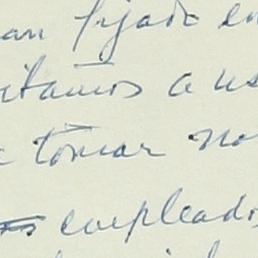 an fijado en
itamos a us
a tomar no
empleado